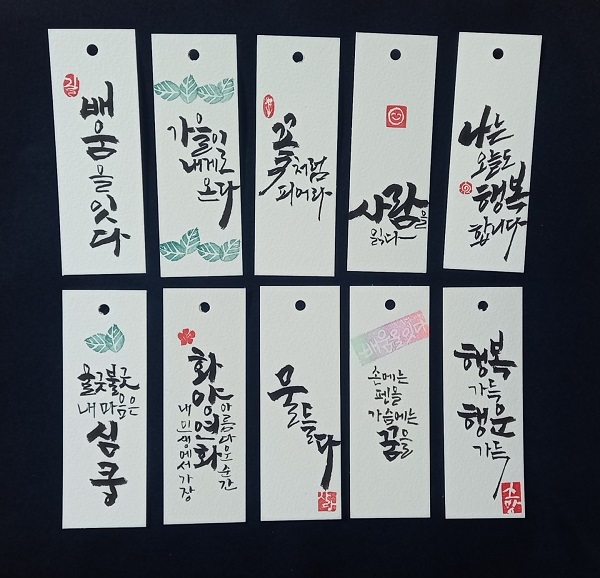 배움
을잇
다
가을이
내게로
온다
꽃처럼
피어라
사람을
읽다
나는
오늘도
행복
합니다
울긋불긋
내마음은
심쿵
화양연화
내 인생에서 가장
아름다운 순간
물들다
배움을잇다
손에는
펜을
가슴에는
꿈을
행복
가득
행운
가득